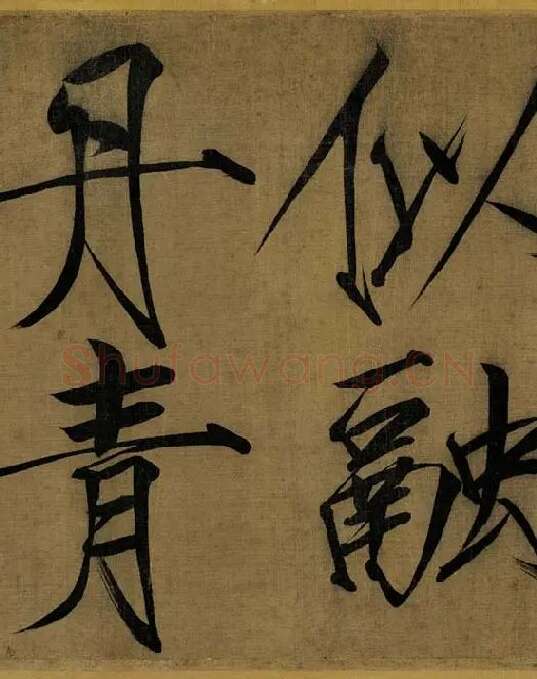 似融
丹青
Shufawang.CN